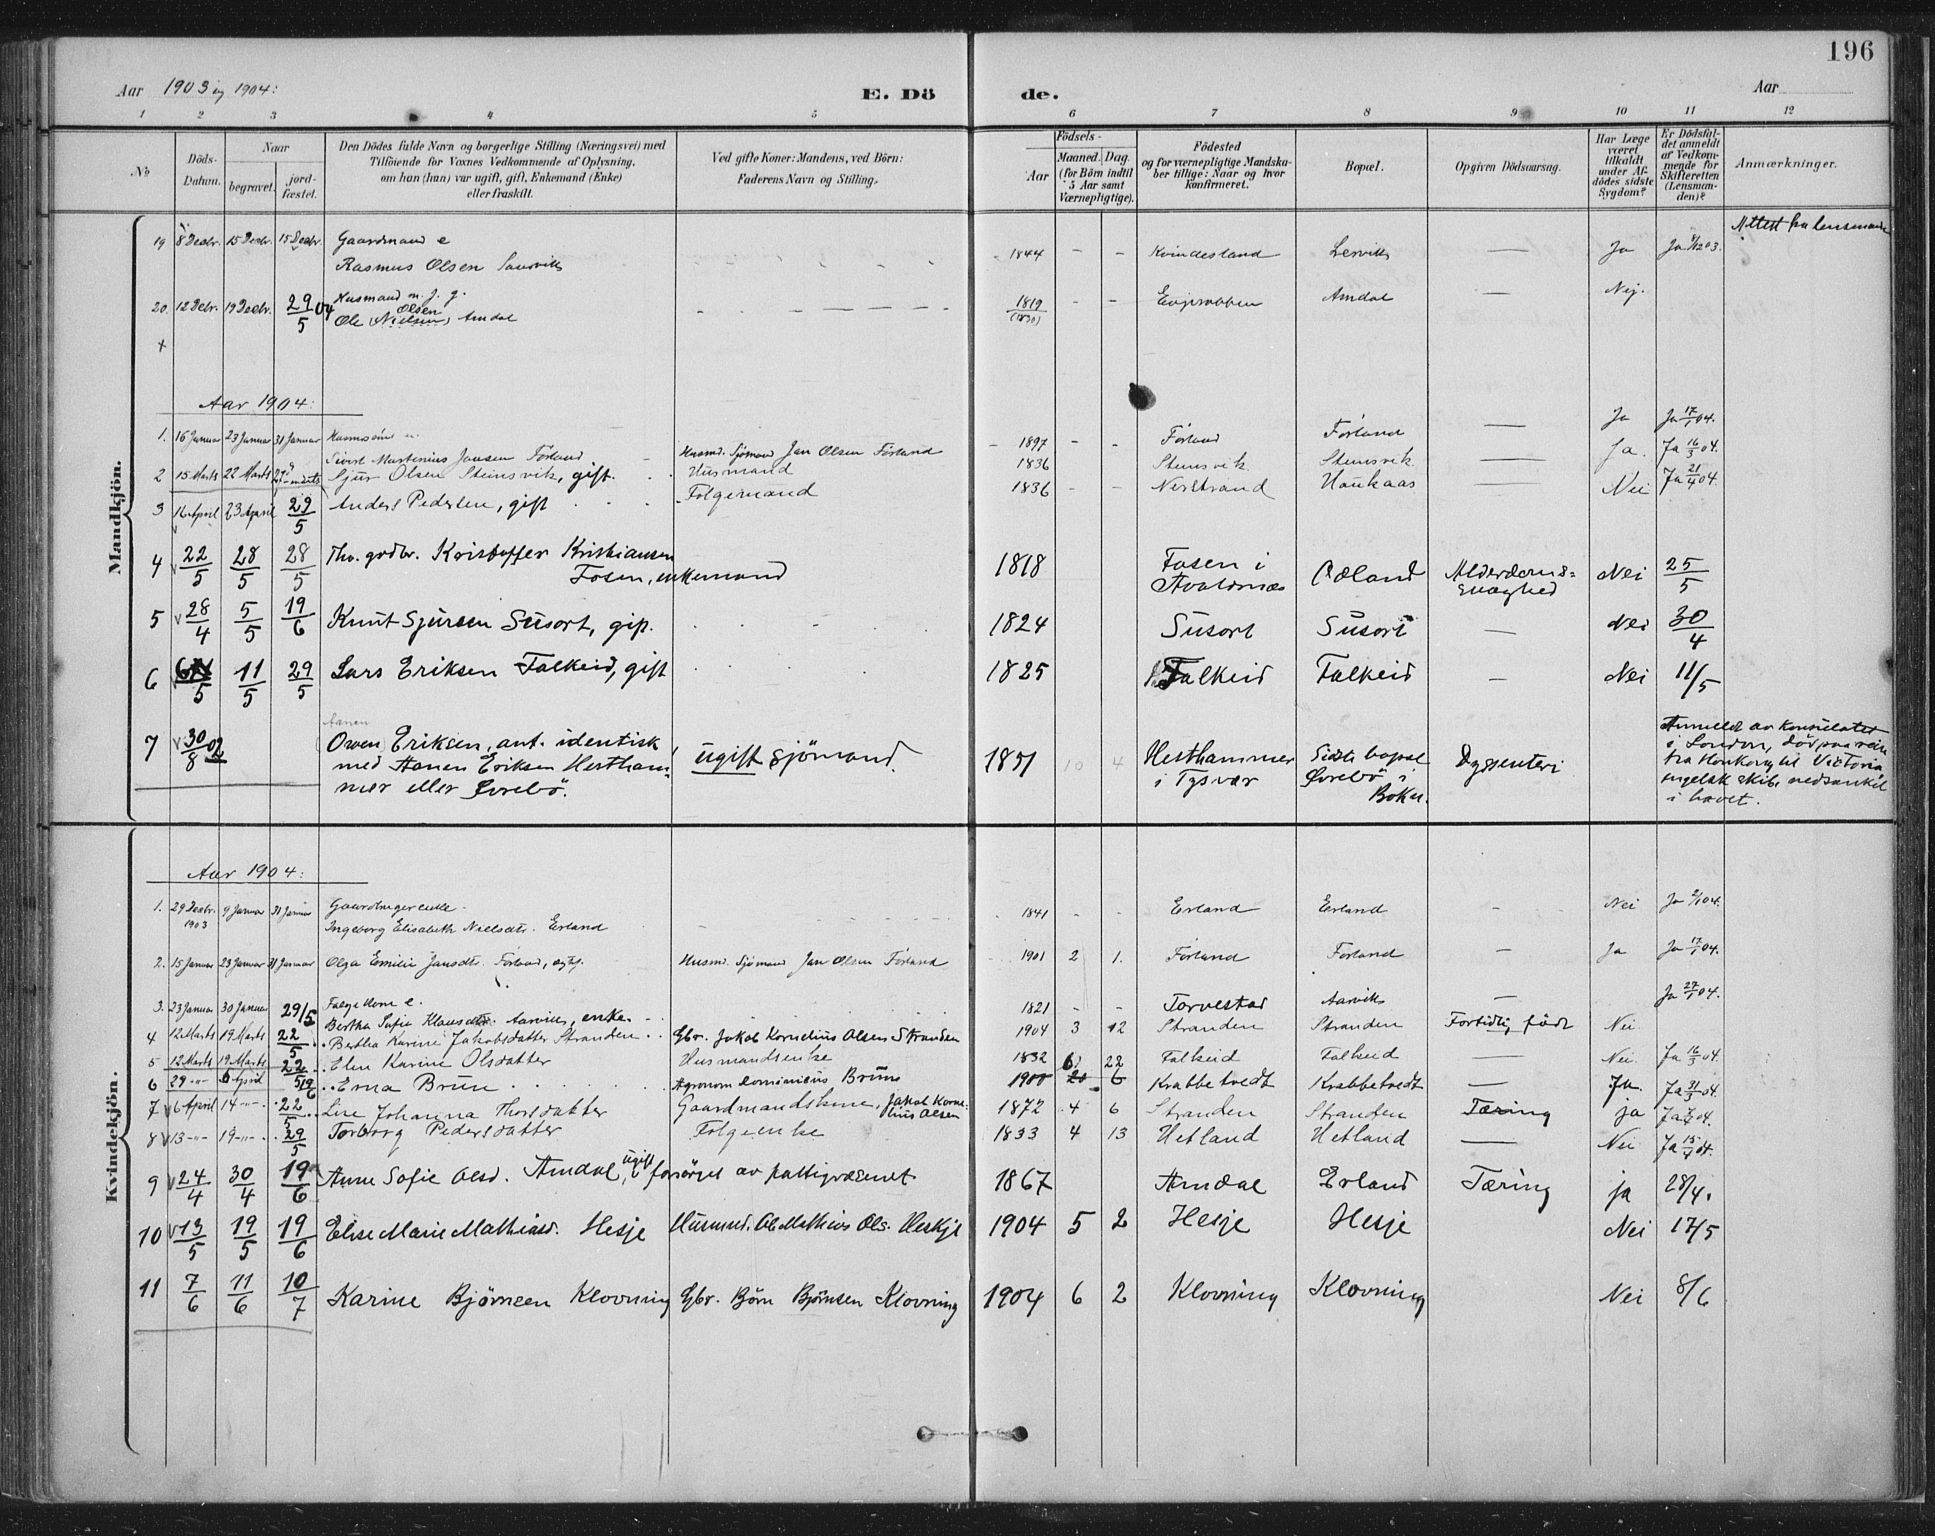 196
Aar 1903 og 1904:
E. Dö
de.
Aar
1 2 3 4 5 6 7 8 9 10 11 12
No
Döds-Datum.
Naar
begravet.
jord-fæstet.
Den Dödes fulde Navn og borgerlige Stilling (Næringsvei) med
Tilföiende for Voxnes Vedkommende af Oplysning,
om han (hun) var ugift, gift, Enkemand (Enke)
eller fraskilt.
Ved gifte Koner: Mandens, ved Börn:
Faderens Navn og Stilling.
Födsels-
Aar
Maaned. Dag.
(for Börn indtil
5 Aar samt
Værnepligtige).
Födested
og for værnepligtige Mandska-
ber tillige: Naar og hvor
Konfirmeret.
Bopæl.
Opgiven Dödsaarsag.
Har Læge
været
tilkaldt
under Af-
dödes sidste
Sygdom?
Er Dödsfal-
det anmeldt
af Vedkom-
mende for
Skifteretten
(Lensman-
den)?
Anmærkninger.
Mandkjön.
19 8 Decbr. 15 Decbr. 15 Decbr. Gaardmand e
Rasmus Olsen 1844 Kvindesland Lervik — Ja Ja 03.
20. 12 Decbr. 19 Decbr. 29/5 04 Husmand m. j. g.
Ole Olsen (Nielsen) Amdal 1819 (1830) Amdal — Nej.
Aar 1904:
1. 16 Januar 23 Januar 31 Januar
Sivert Martenius Jansen Förland Husmd. Sjömand Jan Olsen Förland 1897 - - Förland Förland — Ja Ja 17/1 04.
2 15 Marts 22 Marts Sjur Olsen Stensvik, gift. Husmand 1836 - - Stensvik Stensvik — Ja. Ja 16/3 04.
3 16 April 23 April 29/5 Anders Pedersen, gift Folgemand 1836 - - Nerstrand Haukaas — Nei Ja 21/4 04.
4 22/5 28/5 28/5 Fhv. grdbr. Kristoffer Kristiansen
Fosen, enkemand 1818 Fosen i
Avaldsnes Ådland Alderdoms-
svaghed Nei 25/5
5 28/4 5/5 19/6 Knut Sjursen Susort, gift. 1824 Susort Susort — Nei 30/4
6 6/5 11/5 29/5 Lars Eriksen Falkeid, gift 1825 Falkeid Falkeid — Nei 11/5
7 30/8 02 Aanen
Owen Eriksen, ant. identisk
med Aanen Eriksen Hestham-
mer eller Øvrebö. ugift sjömand. 1851 10 4 Hesthammer
i Tysvær Sidste bopæl
Øvrebö i
Bokn. Dyssenteri Anmeldt av konsulatet
i London, död paa reise
fra Honkong til Victoria
engelsk skib, nedsænket
i havet.
Kvindekjön.
Aar 1904:
1. 29 Decbr. 1903 9 Januar 31 Januar
Ingeborg Elisabeth Nielsdtr. Erland 1841 - - Erland Erland - Nei Ja 2/1 04.
2. 15 Januar 23 Januar 31 Januar Olga Emilie Jansdtr. Förland, Husmd. Sjömand Jan Olsen Förland 1901 2 1. Förland Förland - Ja Ja 17/1 04.
3. 23 Januar 30 Januar 29/5 Folgekone e.
Bertha Sofie Klausdtr. Aarvik, enke. 1821 - - Torvestad Aarvik — Ja 27/1 04.
4 12 Marts 19 Marts 22/5 Bertha Karine Jakobsdatter Stranden Gbr. Jakob Kornelius Olsen Stranden 1904 3 12 Stranden Stranden Fortidlig födt Nei
5 12 Marts 19 Marts 22/5 Elen Karine Olsdatter Husmandsenke 1832 6. 22 Falkeid Falkeid — Nei. Ja 16/3 04.
6 29 -"- 6 April 19/6 Erna Brun Agronom Dominicus Brun 1900 20 6 Krabbetvedt Krabbetvedt — Ja. Ja 31/3 04.
7 6 April 14 -"- 22/5 Line Johanna Thorsdatter Gaardmandskone, Jakob Korne-
lius Olsen 1872 4 6 Stranden Stranden Tæring ja Ja 7/4 04.
8 13 -"- 19 -"- 29/5 Torborg Pedersdatter Folgeenke 1833 4 13 Hetland Hetland — Nei Ja 15/4 04.
9 24/4 30/4 19/6 Anne Sofie Olsd. Amdal, ugift, forsörget av fattigvæsenet 1867 Amdal Erland Tæring ja 28/4.
10 13/5 19/5 19/6 Elise Marie Mathiasd. Hesje Husmd. Ole Mathias Ols. Heskje 1904 5 2 Hesje Hesje Nei 17/5
11 7/6 11/6 10/7 Karine Bjørnsen Klovning Gbr. Bjørn Bjørnsen Klovning 1904 6 2 Klovning Klovning Nei 8/6